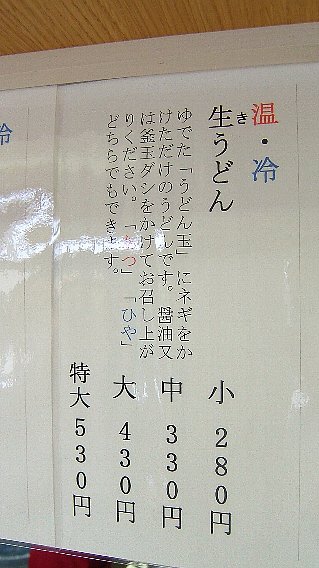 温・冷
生うどん
き
ゆでた「うどん玉」にネギをか
けただけのうどんです。醤油又
は釜玉ダシをかけてお召し上が
りください。「あつ」「ひや」
どちらでもできます。
小 280円
中 330円
大 430円
特大 530円
冷